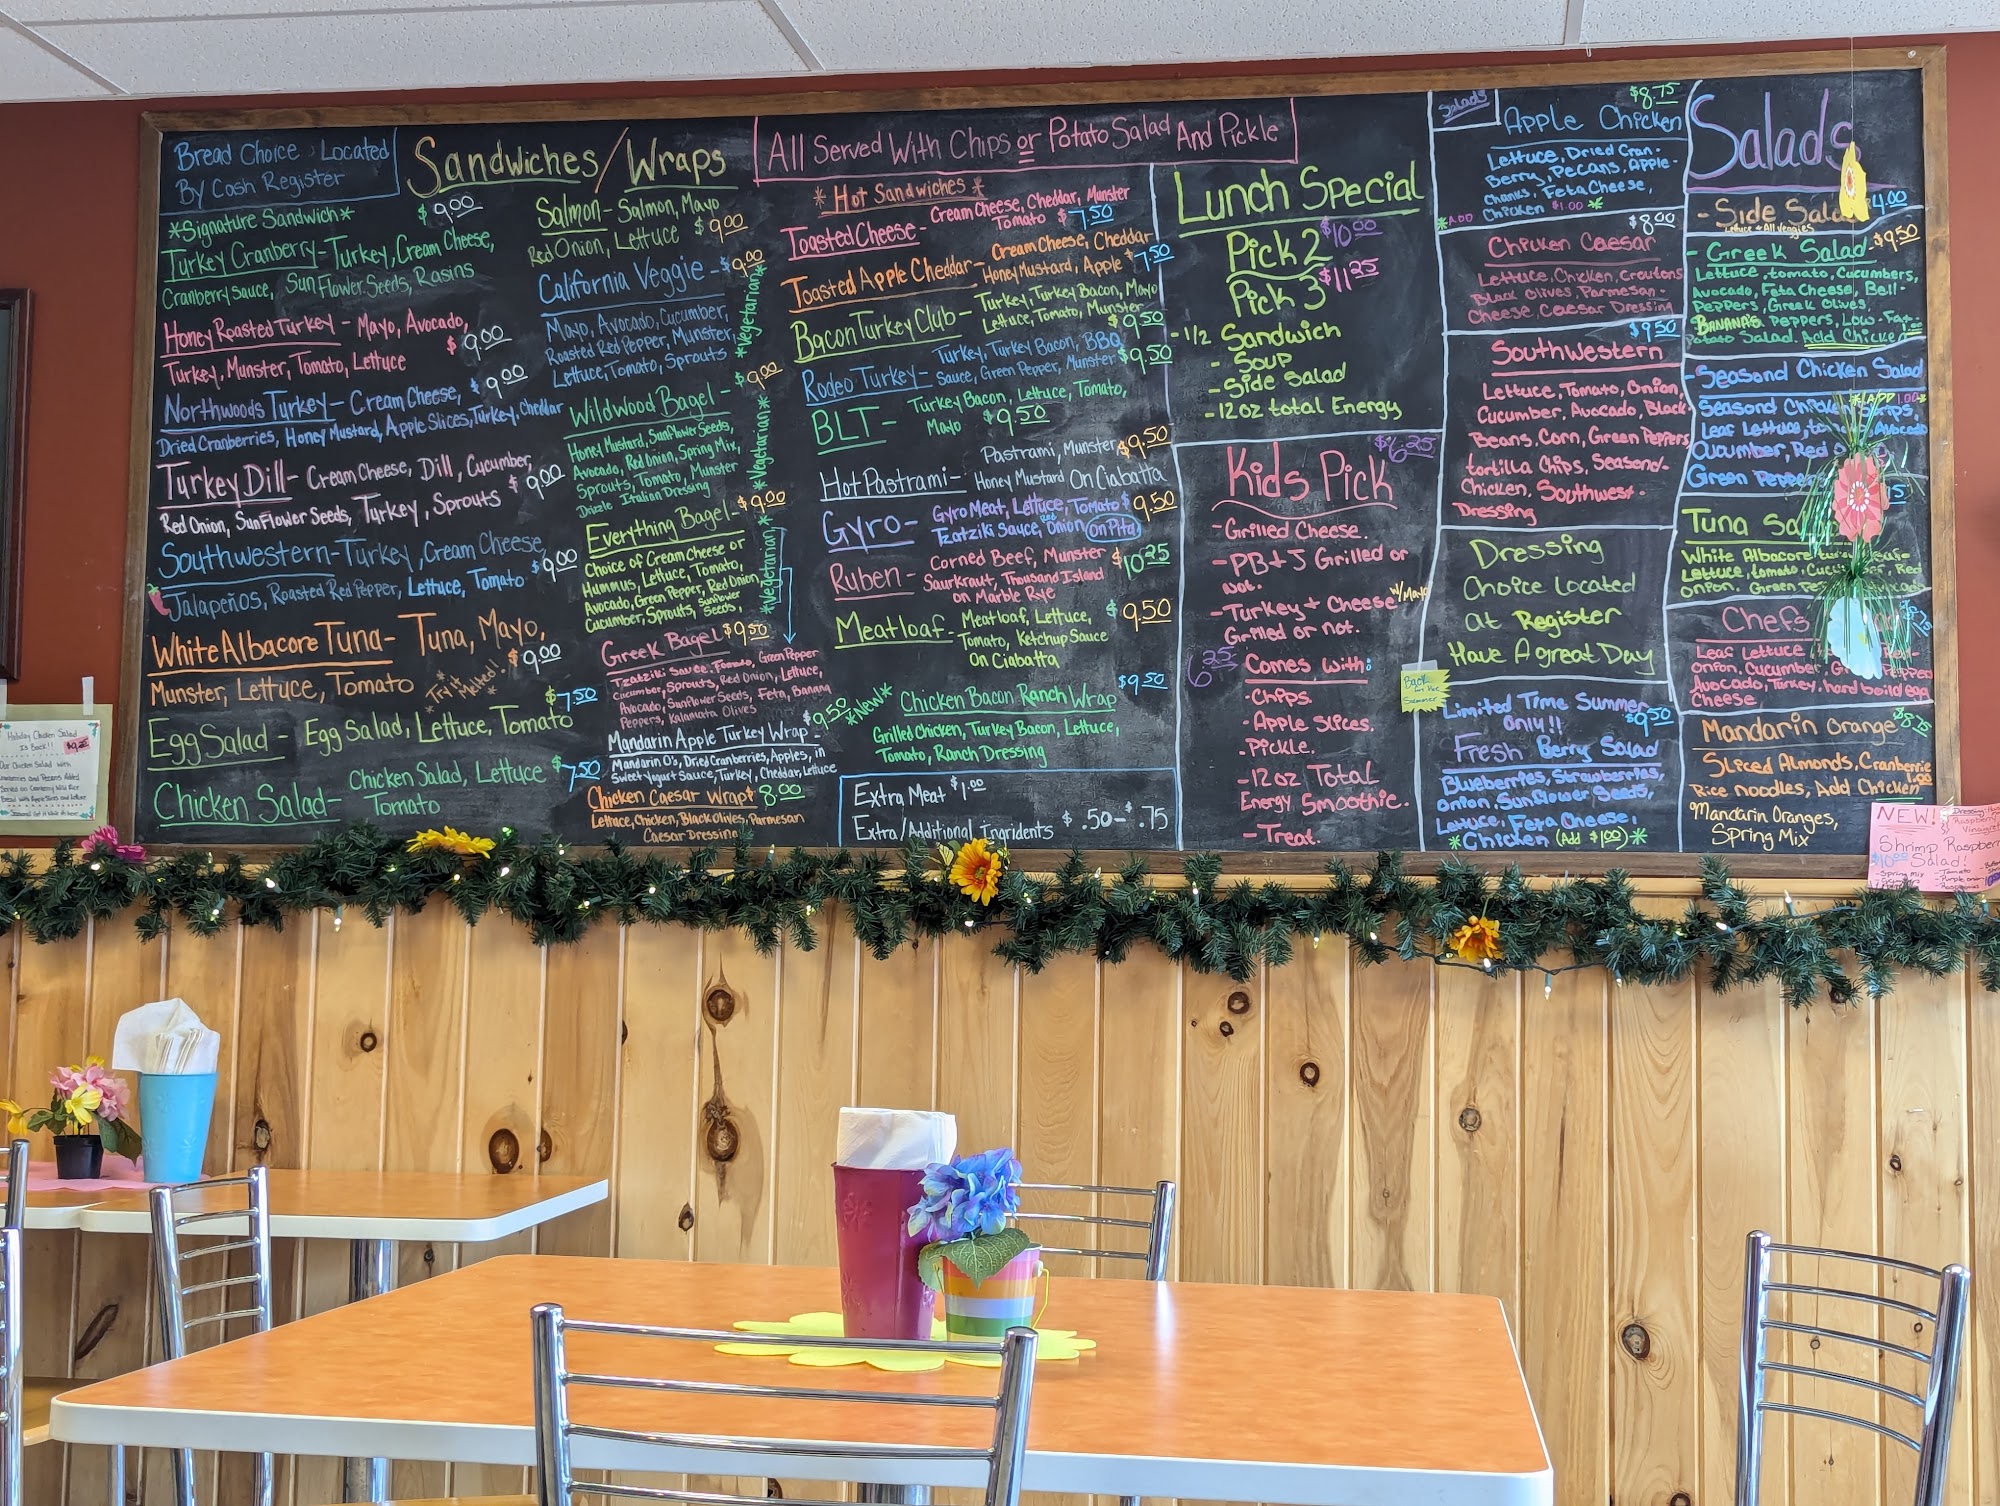 Bread Choice Located
By Cash Register
Sandwiches/Wraps
All Served With Chips or Potato Salad And Pickle
*Signature Sandwich*
$9.00
Turkey Cranberry- Turkey, Cream Cheese,
Cranberry Sauce, Sun Flower Seeds, Rasins
Honey Roasted Turkey - Mayo, Avocado,
Turkey, Munster, Tomato, Lettuce
$9.00
Northwoods Turkey- Cream Cheese, $9.00
Dried Cranberries, Honey Mustard, Apple Slices, Turkey, Cheddar
Turkey Dill- Cream Cheese, Dill, Cucumber,
Red Onion, Sunflower Seeds, Turkey, Sprouts $9.00
Southwestern- Turkey, Cream Cheese,
Jalapeños, Roasted Red Pepper, Lettuce, Tomato $9.00
White Albacore Tuna- Tuna, Mayo,
Munster, Lettuce, Tomato $9.00
*Try it Melted!!*
Egg Salad - Egg Salad, Lettuce, Tomato $7.50
Chicken Salad- Chicken Salad, Lettuce $7.50
Tomato
Salmon- Salmon, Mayo
Red Onion, Lettuce $9.00
California Veggie - $9.00
Mayo, Avocado, Cucumber,
Roasted Red Pepper, Munster,
Lettuce, Tomato, Sprouts
*Vegetarian*
Wildwood Bagel - $9.00
Honey Mustard, Sunflower Seeds,
Avocado, Red Onion, Spring Mix,
Sprouts, Tomato, Munster
Drizzle Italian Dressing
*Vegetarian*
Everything Bagel- $9.00
Choice of Cream Cheese or
Hummus, Lettuce, Tomato,
Avocado, Green Pepper, Red Onion,
Cucumber, Sprouts, Sunflower Seeds,
*Vegetarian*
Greek Bagel $9.50
Tzatziki Sauce, Tomato, Green Pepper
Cucumber, Sprouts, Red Onion, Lettuce,
Avocado, Sunflower Seeds, Feta, Banana
Peppers, Kalamata Olives
Mandarin Apple Turkey Wrap - $9.50
Mandarin O's, Dried Cranberries, Apples, in
Sweet Yogurt Sauce, Turkey, Cheddar, Lettuce
Chicken Caesar Wrap $8.00
Lettuce, Chicken, Black Olives, Parmesan
Caesar Dressing
*Hot Sandwiches*
Toasted Cheese - Cream Cheese, Cheddar, Munster
Tomato $7.50
Toasted Apple Cheddar- Cream Cheese, Cheddar
Honey Mustard, Apple $7.50
Bacon Turkey Club - Turkey, Turkey Bacon, Mayo
Lettuce, Tomato, Munster
$9.50
Rodeo Turkey- Turkey, Turkey Bacon, BBQ
Sauce, Green Pepper, Munster $9.50
BLT- Turkey Bacon, Lettuce, Tomato,
Mayo $9.50
Hot Pastrami- Pastrami, Munster $9.50
Honey Mustard On Ciabatta
Gyro- Gyro Meat, Lettuce, Tomato $9.50
Tzatziki Sauce, Red Onion On Pita
Ruben- Corned Beef, Munster $10.25
Saurkraut, Thousand Island
on Marble Rye
Meatloaf- Meatloaf, Lettuce, $9.50
Tomato, Ketchup Sauce
On Ciabatta
*New* Chicken Bacon Ranch Wrap $9.50
Grilled Chicken, Turkey Bacon, Lettuce,
Tomato, Ranch Dressing
Extra Meat $1.00
Extra/Additional Ingridents $.50-$.75
Lunch Special
Pick 2 $10.00
Pick 3 $11.25
-1/2 Sandwich
- Soup
- Side Salad
- 12 oz total Energy
Kids Pick $6.25
- Grilled Cheese.
- PB+J Grilled or
not.
- Turkey + Cheese w/Mayo
Grilled or not.
6.25
Comes with:
- Chips.
- Apple Slices.
- Pickle.
- 12 oz Total
Energy Smoothie.
- Treat.
Salads
$8.75
Apple Chicken
Lettuce, Dried Cran-
Berry, Pecans, Apple-
Chunks, Feta Cheese,
*ADD Chicken $1.00*
$8.00
Chicken Caesar
Lettuce, Chicken, Croutons
Black Olives, Parmesan-
Cheese, Caesar Dressing
$9.50
Southwestern
Lettuce, Tomato, Onion,
Cucumber, Avocado, Black-
Beans, Corn, Green Peppers
tortilla Chips, Seasond-
Chicken, Southwest-
Dressing
Dressing
Choice Located
at Register
Have A great Day
Back
for the
Summer
Limited Time Summer
only!! $9.50
Fresh Berry Salad
Blueberries, Strawberries,
onion, Sunflower Seeds,
Lettuce, Feta Cheese,
*Chicken (Add $1.00)*
Salads
- Side Salad $4.00
Lettuce + All Veggies
- Greek Salad- $9.50
Lettuce, tomato, Cucumbers,
Avocado, Feta Cheese, Bell-
Peppers, Greek Olives
BANANA'S Peppers, Low-Fat-
Potato Salad. Add Chicken 1.00
Seasond Chicken Salad
*ADD 1.00*
Seasond Chicken Strips,
Leaf Lettuce, Avocado
Cucumber, Red
Green Pepper
Tuna
White Albacore
Lettuce, tomato, Red
onion, Green
Chefs
Leaf Lettuce Red-
onion, Cucumber,
Avocado, Turkey, hard boild egg
Cheese
Mandarin Orange $8.75
Sliced Almonds, Cranberrie
Rice noodles, Add Chicken 1.00
Mandarin Oranges,
Spring Mix
NEW!
Raspberry
Shrimp Raspberry
$10.00 Salad!
-Spring mix
-Tomato
Holiday Chicken Salad
Is Back!! $9.25
Our Chicken Salad with
Cranberries and Pecans Added
Served on Cranberry Wild Rice
Bread with Apple Slices and Lettuce